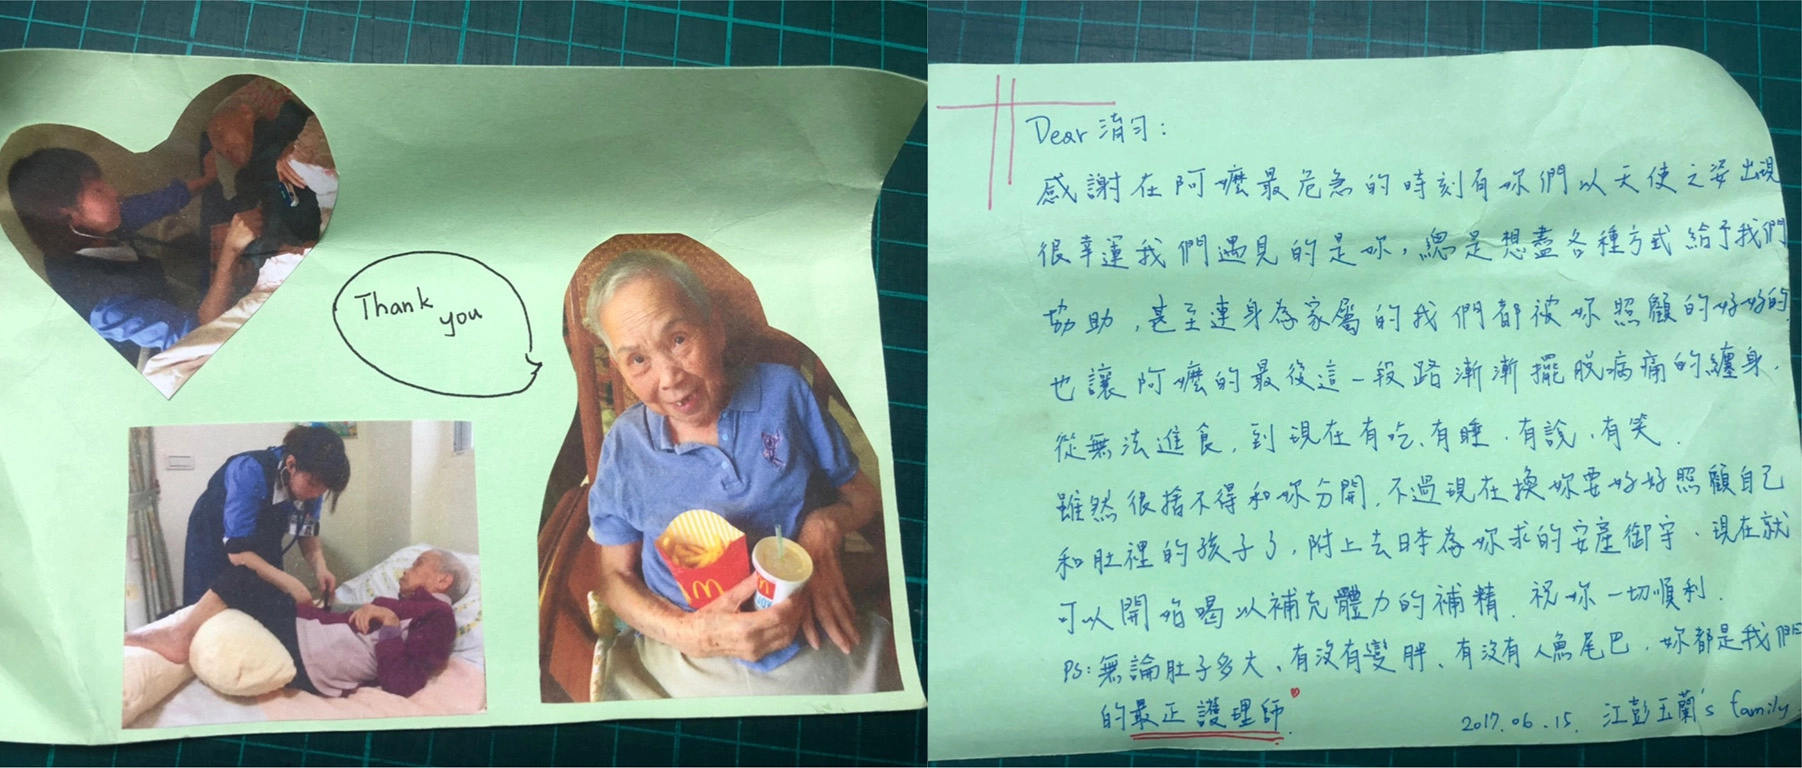 Thank
you
Dear 淯勻：
感謝在阿嬤最危急的時刻有妳們以天使之姿出現
很幸運我們遇見的是妳，總是想盡各種方式給予我們
協助，甚至連身為家屬的我們都被妳照顧的好好的
也讓阿嬤的最後這一段路漸漸擺脫病痛的纏身．
從無法進食，到現在有吃、有睡、有說、有笑．
雖然很捨不得和妳分開，不過現在換妳要好好照顧自己
和肚裡的孩子了，附上去日本為妳求的安產御守、現在就
可以開始喝以補充體力的補精．祝妳一切順利．
PS：無論肚子多大、有沒有變胖、有沒有人魚尾巴，妳都是我們
的最正護理師
2017.06.15. 江彭玉蘭's family